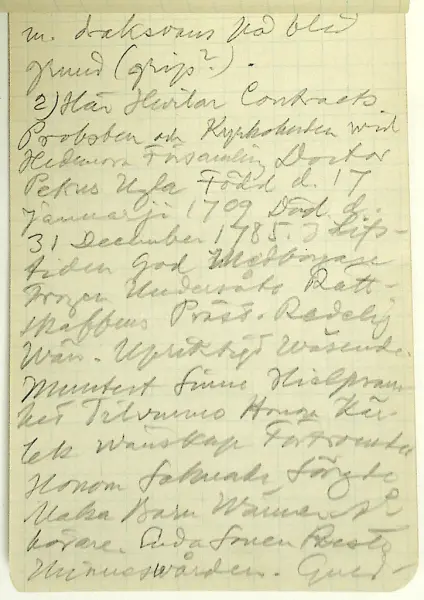 m. draksvans på blå
grund (grip?).
2) Här Hvilar Contracts
Probsten och Kyrkoherden wid
Hedemora Församling Doctor
Petrus Ugla Född d. 17
Januarji 1709 Död d.
31 December 1785. I Lifs-
tiden God Medborgare
Trogen Undersåte Rätt-
skaffens Präst. Redelig
Wän. Upriktigt Wäsende.
Muntert Sinne Hielpsam-
het Tilvunno Honom Kär-
lek Wänskap Förtroende
Honom Saknade Sörgde
Maka Barn Wänner Å-
hörare. Enda Sonen Reste
Minneswården. Gud-